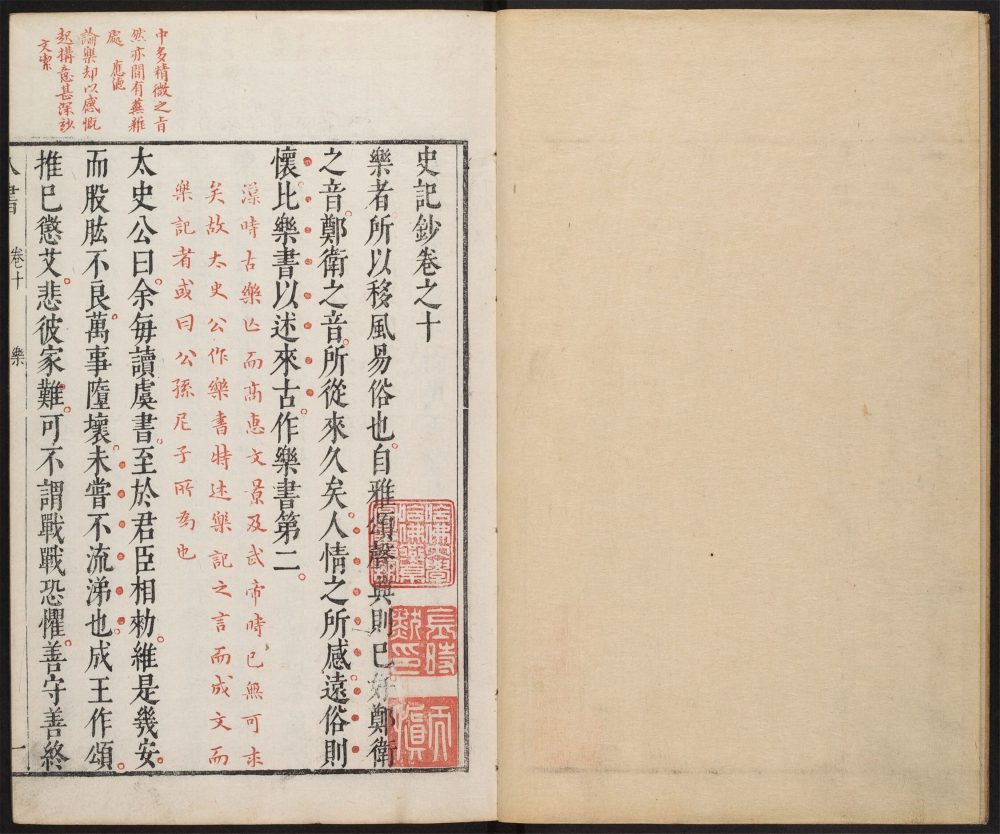 史記鈔卷之十
樂者所以移風易俗也自雅頌聲興則已好鄭衛
之音鄭衛之音所從來久矣人情之所感遠俗則
懷比樂書以述來古作樂書第二
漢時古樂亡而高惠文景及武帝時已無可求
矣故太史公作樂書特述樂記之言而成文而
樂記者或曰公孫尼子所為也
太史公曰余每讀虞書至於君臣相勑維是幾安
而股肱不良萬事墮壞未嘗不流涕也成王作頌
推已懲艾悲彼家難可不謂戰戰恐懼善守善終
中多精微之旨
然亦間有蕪雜
處 應德
論樂却以感慨
起搆意甚深玅
文潔
書 卷十 樂 一